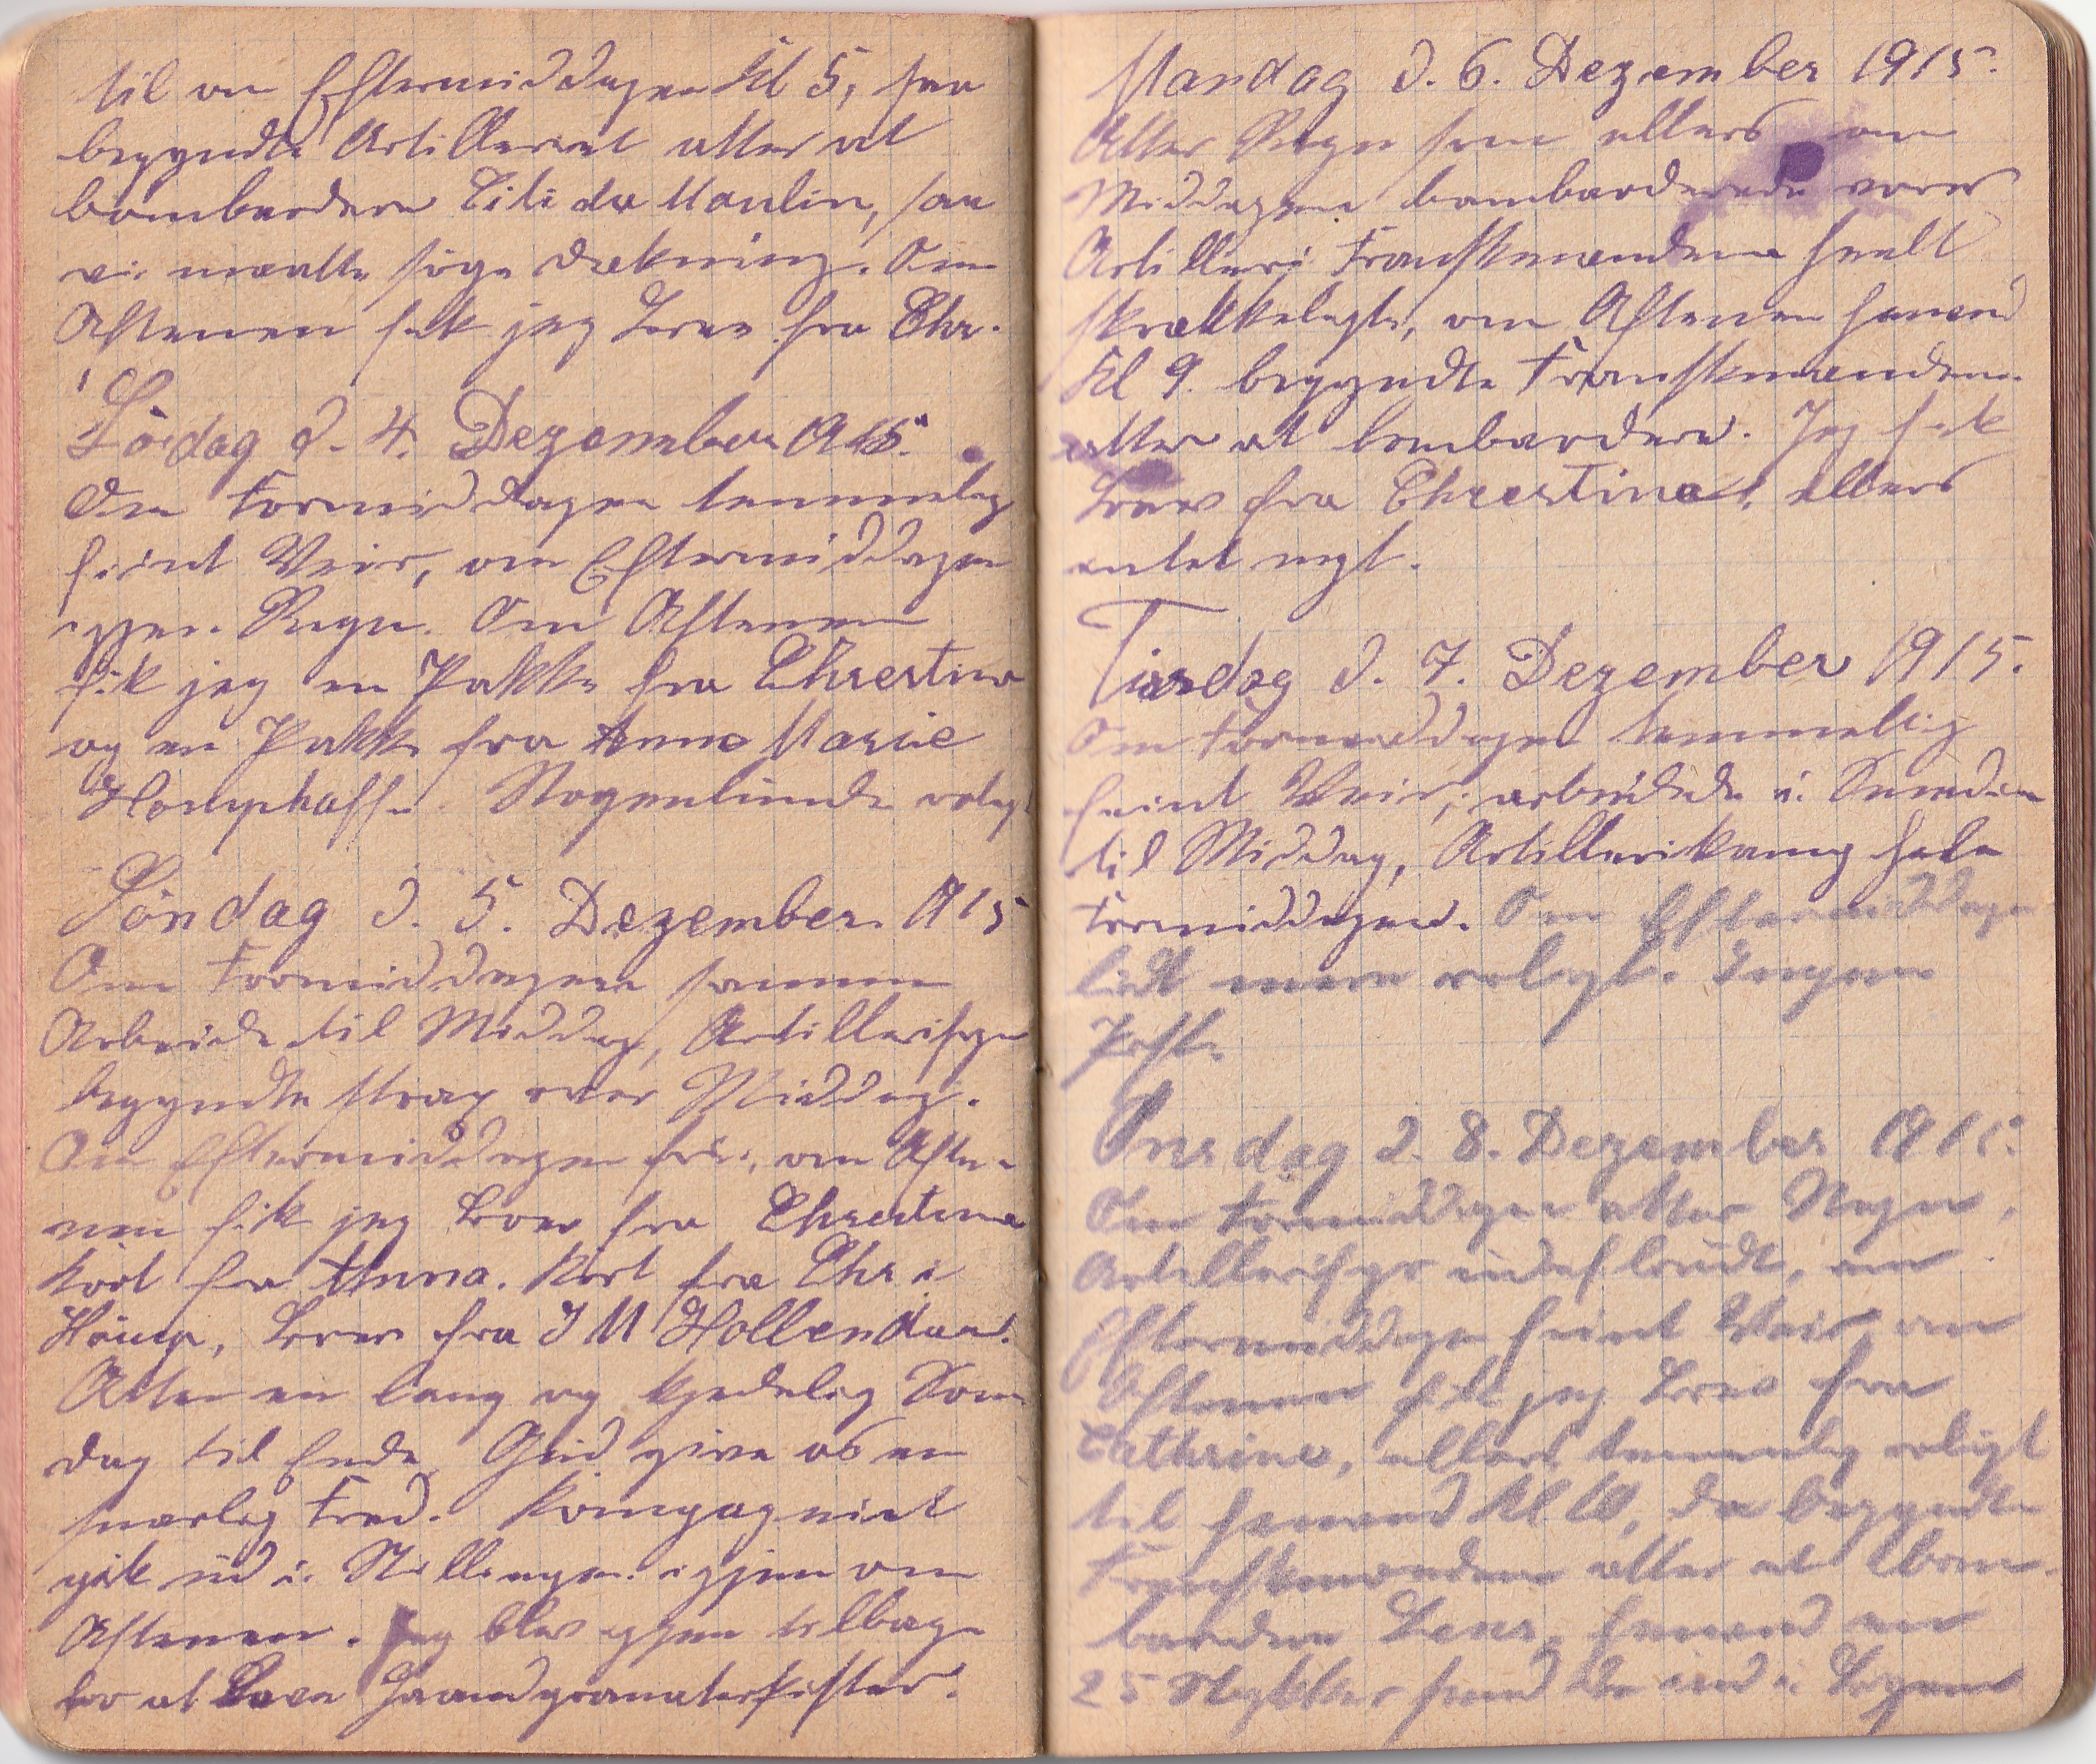 til om Eftermiddagen Kl 5, saa
begyndte Artilleriet atter at
bombardere Cite du Moulin, saa
vi maatte söge Dækning. Om
Aftenen fik jeg Brev fra Chr.
Lördag d. 4. Dezember 1915.
Om Formiddagen temmelig
feint Veir, om Eftermiddagen
igjen Regn. Om Aftenen
fik jeg en Pakke fra Chrestine
og en Pakke fra Anna Marie
Nogenlunde roligt
Söndag d. 5. Dezember 1915
Om Formiddagen samme
Arbeide til Middag, Artillerifyr
begyndte strax over Middag.
Om Eftermiddagen fri, om Afte-
nen fik jeg Brev fra Chrestine
Kort fra Anna. Kort fra Chr.
Brev fra J M Hollendar.
Atter en lang og kjedelig Sön
dag til Ende. Gud give os en
snarlig Fred. Kompagniet
gik ud i Stellingen igjen om
Aftenen. Jeg blev igjen tilbage
for at Lave Haandgranaterkister.
Mandag d. 6. Dezember 1915.
Atter Regn som ellers om
Middagen bombarderede vores
Artilleri Franskmændene heelt
skrækkeligte, om Aftenen henved
Kl 9. begyndte Franskmændene
atter at bombardere. Jeg fik
Brev fra Chrestine, ellers
entet nyt.
Tirsdag d. 7. Dezember 1915.
Om Formiddagen temmelig
feint Veir, arbeidede i
til Middag, Artillerikamp hele
Formiddagen. Om Eftermiddagen
lidt mere roligt. Ingen
Post.
Onsdag d. 8. Dezember 1915.
Om Formiddagen atter Regn,
Artillerifyr uduflondt, om
Eftermiddagen feint Veir, om
Aftenen fik jeg Brev fra
Cathrine, ellers temmelig roligt
til henved Kl 10, da begyndte
Franskmændene atter at bom-
bardere Lens, henved en
25 Stykker send de ind i Byen